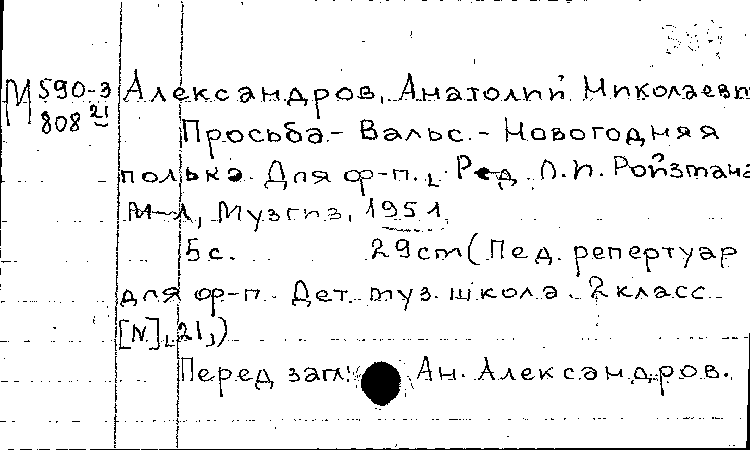 М 590-3 Александров, Анатолий Николаевич
808 21 Просьба - Вальс. - Новогодняя
полька. Для ф-п. Ред. Л. И. Ройзмана
М-Л, Музгиз, 1951.
5 с. 29 cm (Пед. репертуар
для ф-п. Дет. муз. школа. 2 класс
[N], 21,)
Перед загл: Ан. Александров.